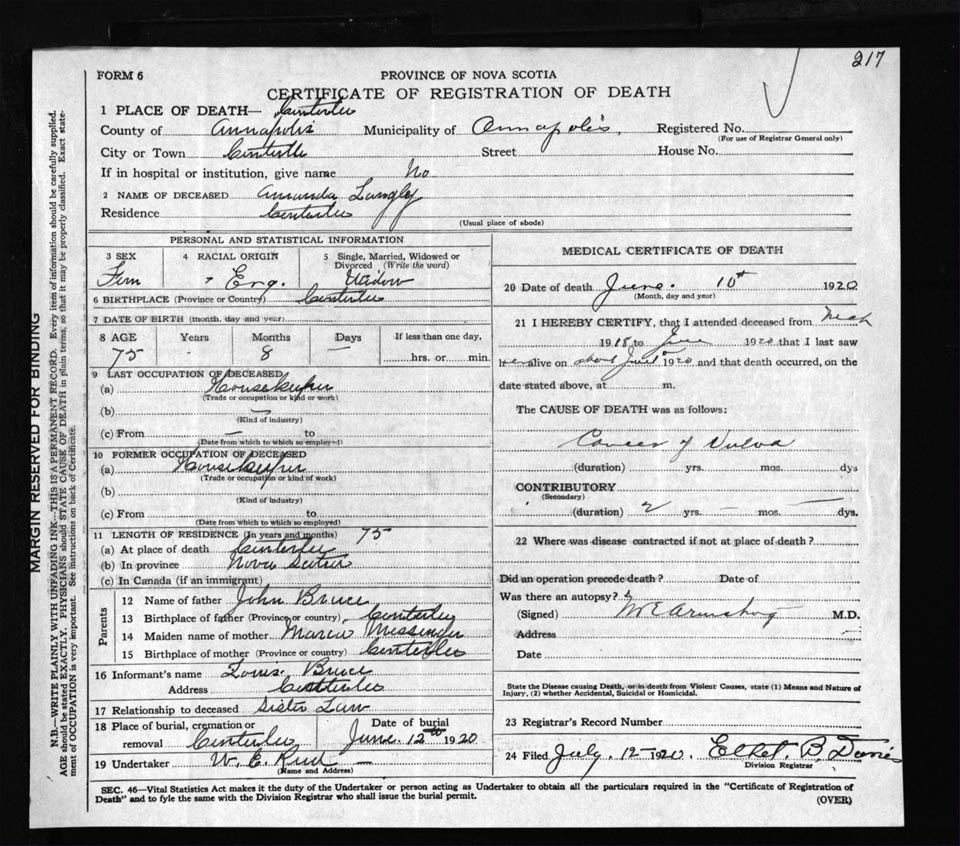 217
FORM 6
PROVINCE OF NOVA SCOTIA
CERTIFICATE OF REGISTRATION OF DEATH
1 PLACE OF DEATH—
County of Annapolis Municipality of Annapolis, Registered No.
(For use of Registrar General only)
City or Town Street House No.
If in hospital or institution, give name No
2 NAME OF DECEASED Amanda Langley
Residence
(Usual place of abode)
PERSONAL AND STATISTICAL INFORMATION
3 SEX 4 RACIAL ORIGIN 5 Single, Married, Widowed or Divorced (Write the word)
Fem Eng. Widow
6 BIRTHPLACE (Province or Country)
7 DATE OF BIRTH (month, day and year)
8 AGE Years Months Days If less than one day,
75 - 8 — hrs. or min.
9 LAST OCCUPATION OF DECEASED
(a) Housekeeper
(Trade or occupation or kind or work)
(b) —
(Kind of industry)
(c) From — to
(Date from which to which so employed)
10 FORMER OCCUPATION OF DECEASED
(a) Housekeeper
(Trade or occupation or kind of work)
(b)
(Kind of industry)
(c) From to
(Date from which to which so employed)
11 LENGTH OF RESIDENCE (In years and months) 75
(a) At place of death
(b) In province Nova Scotia
(c) In Canada (if an immigrant)
Parents
12 Name of father John Bruce
13 Birthplace of father (Province or country)
14 Maiden name of mother Messenger
15 Birthplace of mother (Province or country)
16 Informant's name Louis Bruce
Address
17 Relationship to deceased Sister Law
18 Place of burial, cremation or removal Date of burial
June. 12th 1920
19 Undertaker W. E. Reid —
(Name and Address)
MEDICAL CERTIFICATE OF DEATH
20 Date of death June. 10th 1920
(Month, day and year)
21 I HEREBY CERTIFY, that I attended deceased from
1918 to June 1920 that I last saw
her alive on about 1920 and that death occurred, on the
date stated above, at m.
The CAUSE OF DEATH was as follows:
Cancer of Vulva
(duration) yrs. mos. dys
CONTRIBUTORY
(Secondary)
(duration) 2 yrs. — mos. — dys.
22 Where was disease contracted if not at place of death?
Did an operation precede death? Date of
Was there an autopsy?
(Signed) Armstrong M.D.
Address —
Date
State the Disease causing Death, or in death from Violent Causes, state (1) Means and Nature of
Injury, (2) whether Accidental, Suicidal or Homicidal.
23 Registrar's Record Number
24 Filed July. 12— 1920. Ethel. B. Davies
Division Registrar
SEC. 46—Vital Statistics Act makes it the duty of the Undertaker or person acting as Undertaker to obtain all the particulars required in the "Certificate of Registration of
Death" and to fyle the same with the Division Registrar who shall issue the burial permit.
(OVER)
MARGIN RESERVED FOR BINDING
N.B.—WRITE PLAINLY WITH UNFADING INK—THIS IS A PERMANENT RECORD. Every item of information should be carefully supplied.
AGE should be stated EXACTLY. PHYSICIANS should STATE CAUSE OF DEATH in plain terms, so that it may be properly classified. Exact state-
ment of OCCUPATION is very important. See instructions on back of Certificate.